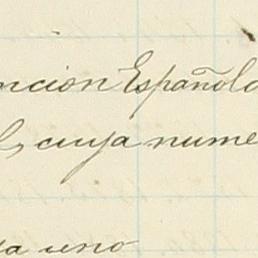 ncion Española
l, cuya nume
ya uno